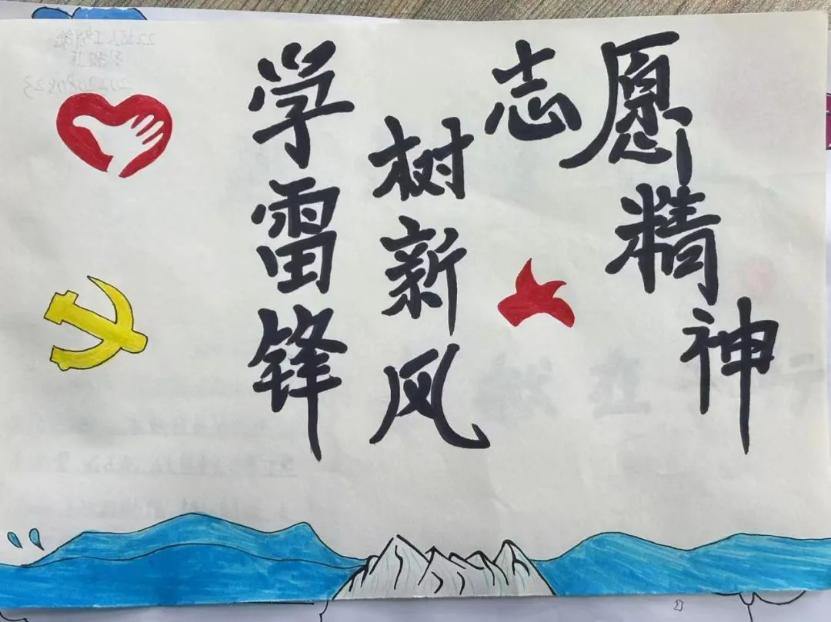 学雷锋
树新风
志愿精神